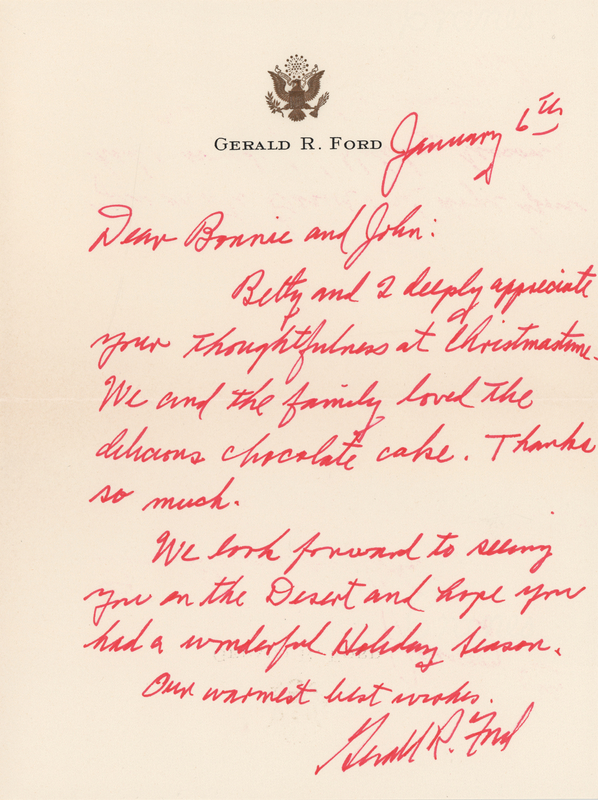 GERALD R. FORD
January 6th
Dear Bonnie and John:
Betty and I deeply appreciate
your thoughtfulness at Christmastime.
We and the family loved the
delicious chocolate cake. Thanks
so much.
We look forward to seeing
you on the Desert and hope you
had a wonderful Holiday Season.
Our warmest best wishes.
Gerald R. Ford